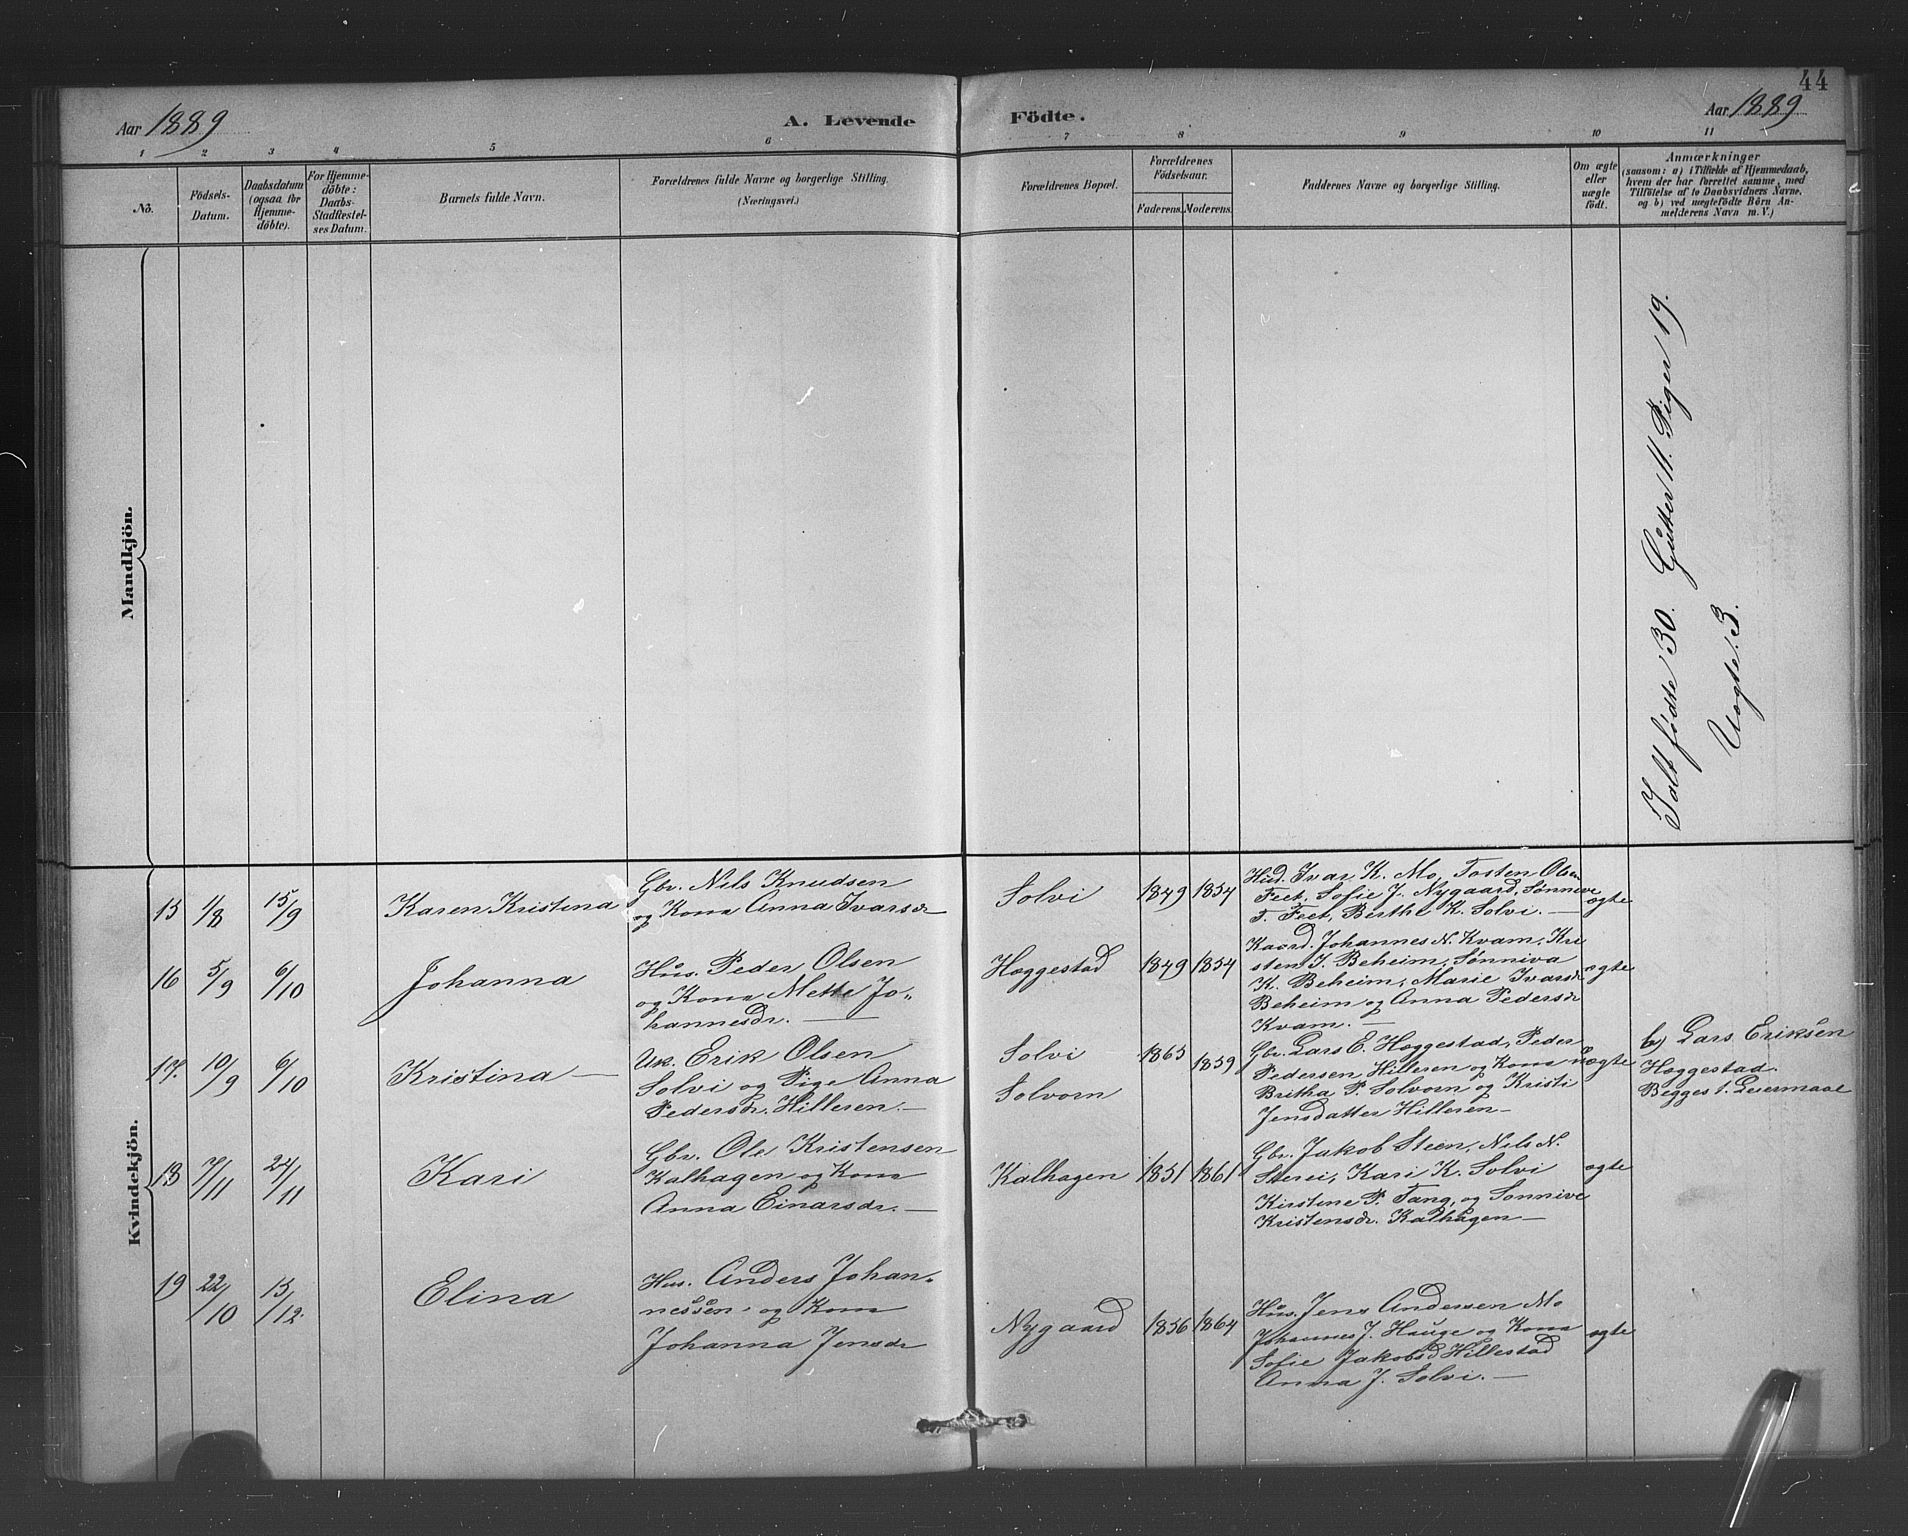 44
Aar 1889
A. Levende Födte.
Aar 1889
1 2 3 4 5 6 7 8 9 10 11
No.
Födsels-Datum.
Daabsdatum (ogsaa for Hjemme-döbte).
For Hjemme-döbte: Daabs-Stadfæstel-ses Datum.
Barnets fulde Navn.
Forældrenes fulde Navne og borgerlige Stilling.
(Næringsvei.)
Forældrenes Bopæl.
Forældrenes Födselsaar.
Faderens. Moderens.
Faddernes Navne og borgerlige Stilling.
Om ægte eller uægte födt.
Anmærkninger
(saasom: a) i Tilfælde af Hjemmedaab, hvem der har forrettet samme, med Tilföielse af to Daabsvidners Navne, og b) ved uægtefödte Börn An-melderens Navn m. V.)
Mandkjön.
Ialt fødte 30. Gutter 11. Piger 19.
Uægte: 3.
Kvindekjön.
15 1/8 15/9 Karen Kristina
Gbr. Nils Knudsen
og Kona Anna Ivarsdr
Solvi 1849 1854
Hus. Ivar K. Mo, Tosten Olsen
Feet, Sofie J. Nygaard, Sønnive
T. Feet, Berthe K. Solvi. —
ægte
16 5/9 6/10 Johanna
Hus. Peder Olsen
og Kona Mette Jo-
hannesdr. —
Hæggestad 1849 1854
Kaard. Johannes N. Kvam, Kri
sten J. Beheim, Sønniva
K. Beheim, Marie Ivarsdr
Beheim og Anna Pedersdr
Kvam. —
ægte
17. 10/9 6/10 Kristina —
Uk. Erik Olsen
Solvi og Pige Anna
Pedersdr. Hilleren. —
Solvi
Solvorn
1865 1859
Gbr. Lars E. Hæggestad, Peder
Pedersen Hilleren og Kona
Britha P. Solvorn og Kristi
Jensdatter Hilleren —
uægte
b) Lars Eriksen
Hæggestad.
Begges 1. Leiermaal
18 7/11 24/11 Kari
Gbr. Ole Kristensen
Kalhagen og Kona
Anna Einarsdr. —
Kalhagen 1851 1861
Gbr. Jakob Steen, Nils N.
Sterei, Kari K. Solvi
Kirstine P. Tang, og Sønnive
Kristensdr. Kalhagen —
ægte
19 22/10 15/12 Elina
Hus. Anders Johan-
nessen og Kona
Johanna Jensdr
Nygaard 1856 1864
Hus. Jens Andersen Mo
Johannes J. Hauge og Kona
Sofie Jakobsd Hillestad
Anna J. Solvi. —
ægte